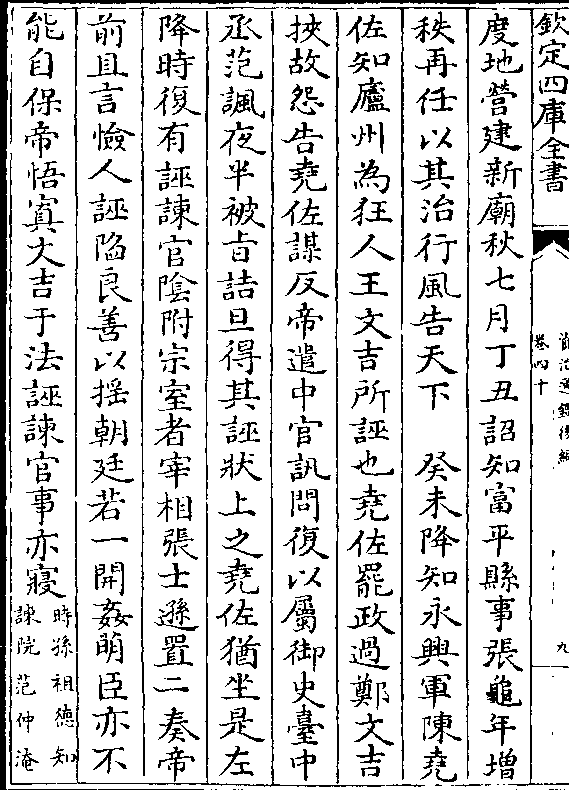 欽定四庫全書
資治通鑑後編
卷四十
九
度地營建新廟秋七月丁丑詔知富平縣事張龜年增
秩再任以其治行風告天下　癸未降知永興軍陳堯
佐知廬州為狂人王文吉所誣也堯佐罷政過鄭文吉
挾故怨告堯佐謀反帝遣中官訊問復以屬御史臺中
丞范諷夜半被㫖詰旦得其誣狀上之堯佐猶坐是左
降時復有誣諫官隂附宗室者宰相張士遜置二奏帝
前且言憸人誣陷良善以揺朝廷若一開姦萌臣亦不
能自保帝悟寘大吉于法誣諫官事亦寢
時孫祖德知
諫院范仲淹